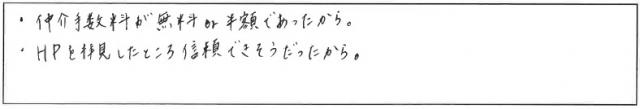 ・仲介手数料が無料or半額であったから。
・HPを拝見したところ信頼できそうだったから。